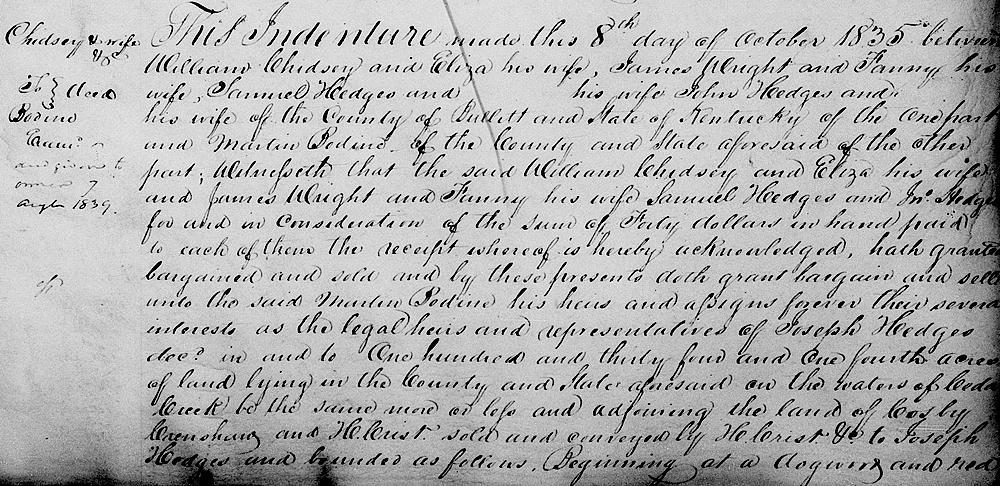 Chidsey & wife
&c
To } Deed
Bodine
Exam.
and given to
owner 7
Augt 1839.
This Indenture made this 8th day of October 1835 between
William Chidsey and Eliza his wife, James Wright and Fanny his
wife, Samuel Hedges and his wife John Hedges and
his wife of the County of Bullitt and State of Kentucky of the one part
and Martin Bodine of the County and State aforesaid of the other
part; Witnesseth that the said William Chidsey and Eliza his wife
and James Wright and Fanny his wife Samuel Hedges and Jno. Hedges
for and in consideration of the sum of Forty dollars in hand paid
to each of them the receipt whereof is hereby acknowledged, hath granted
bargained and sold and by these presents doth grant bargain and sell
unto the said Martin Bodine his heirs and assigns forever their several
interests as the legal heirs and representatives of Joseph Hedges
decd. in and to One hundred and thirty four and one fourth acres
of land lying in the County and State aforesaid on the waters of Cedar
Creek be the same more or less and adjoining the land of Cosby
Crenshaw and H. Crist. sold and conveyed by H Crist &c to Joseph
Hedges and bounded as follows, Beginning at a dogwood and red